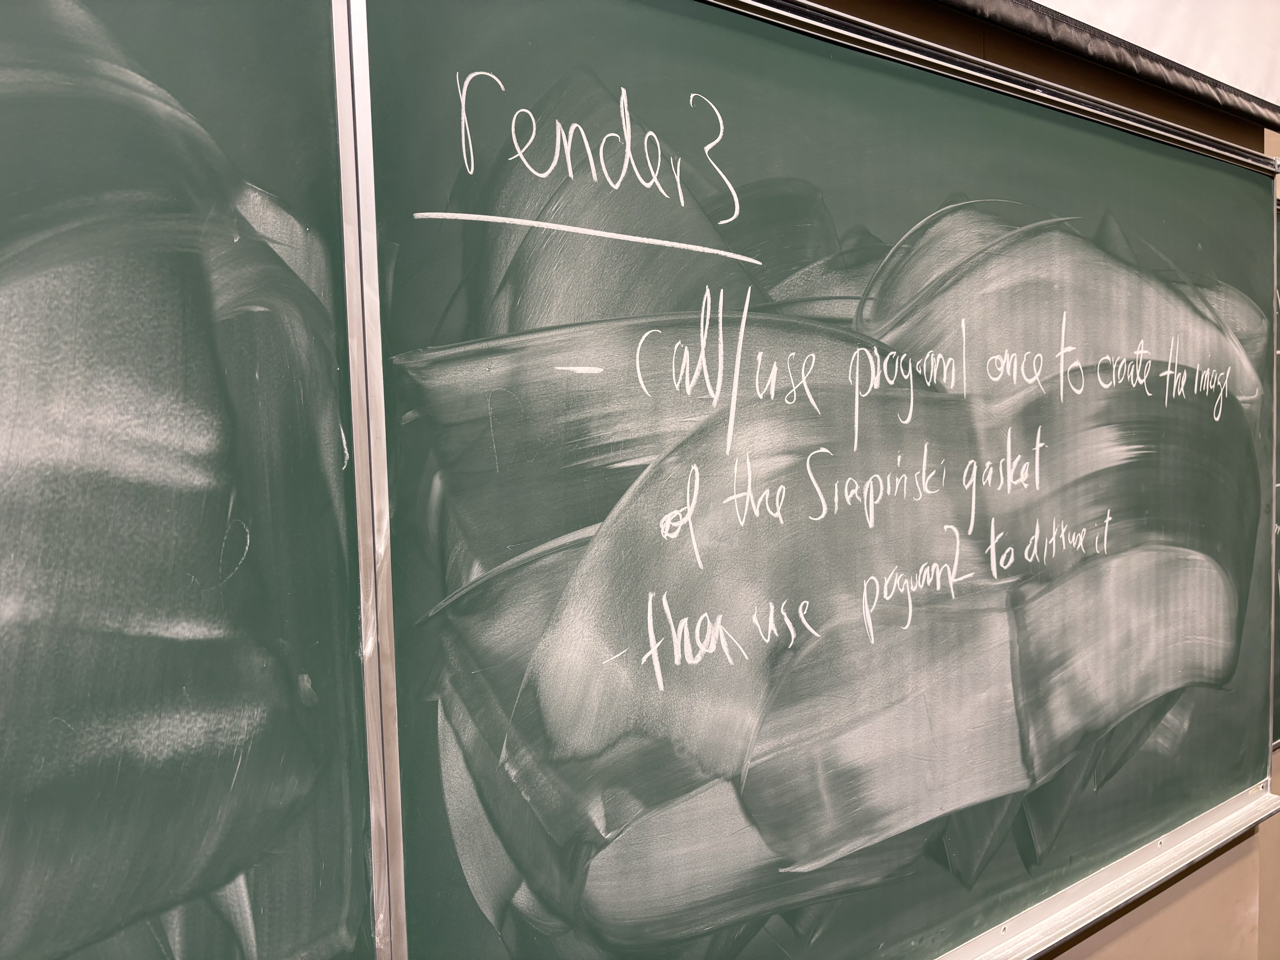 render3
- call/use program1 once to create the image
of the Sierpiński gasket
- then use program2 to diffuse it